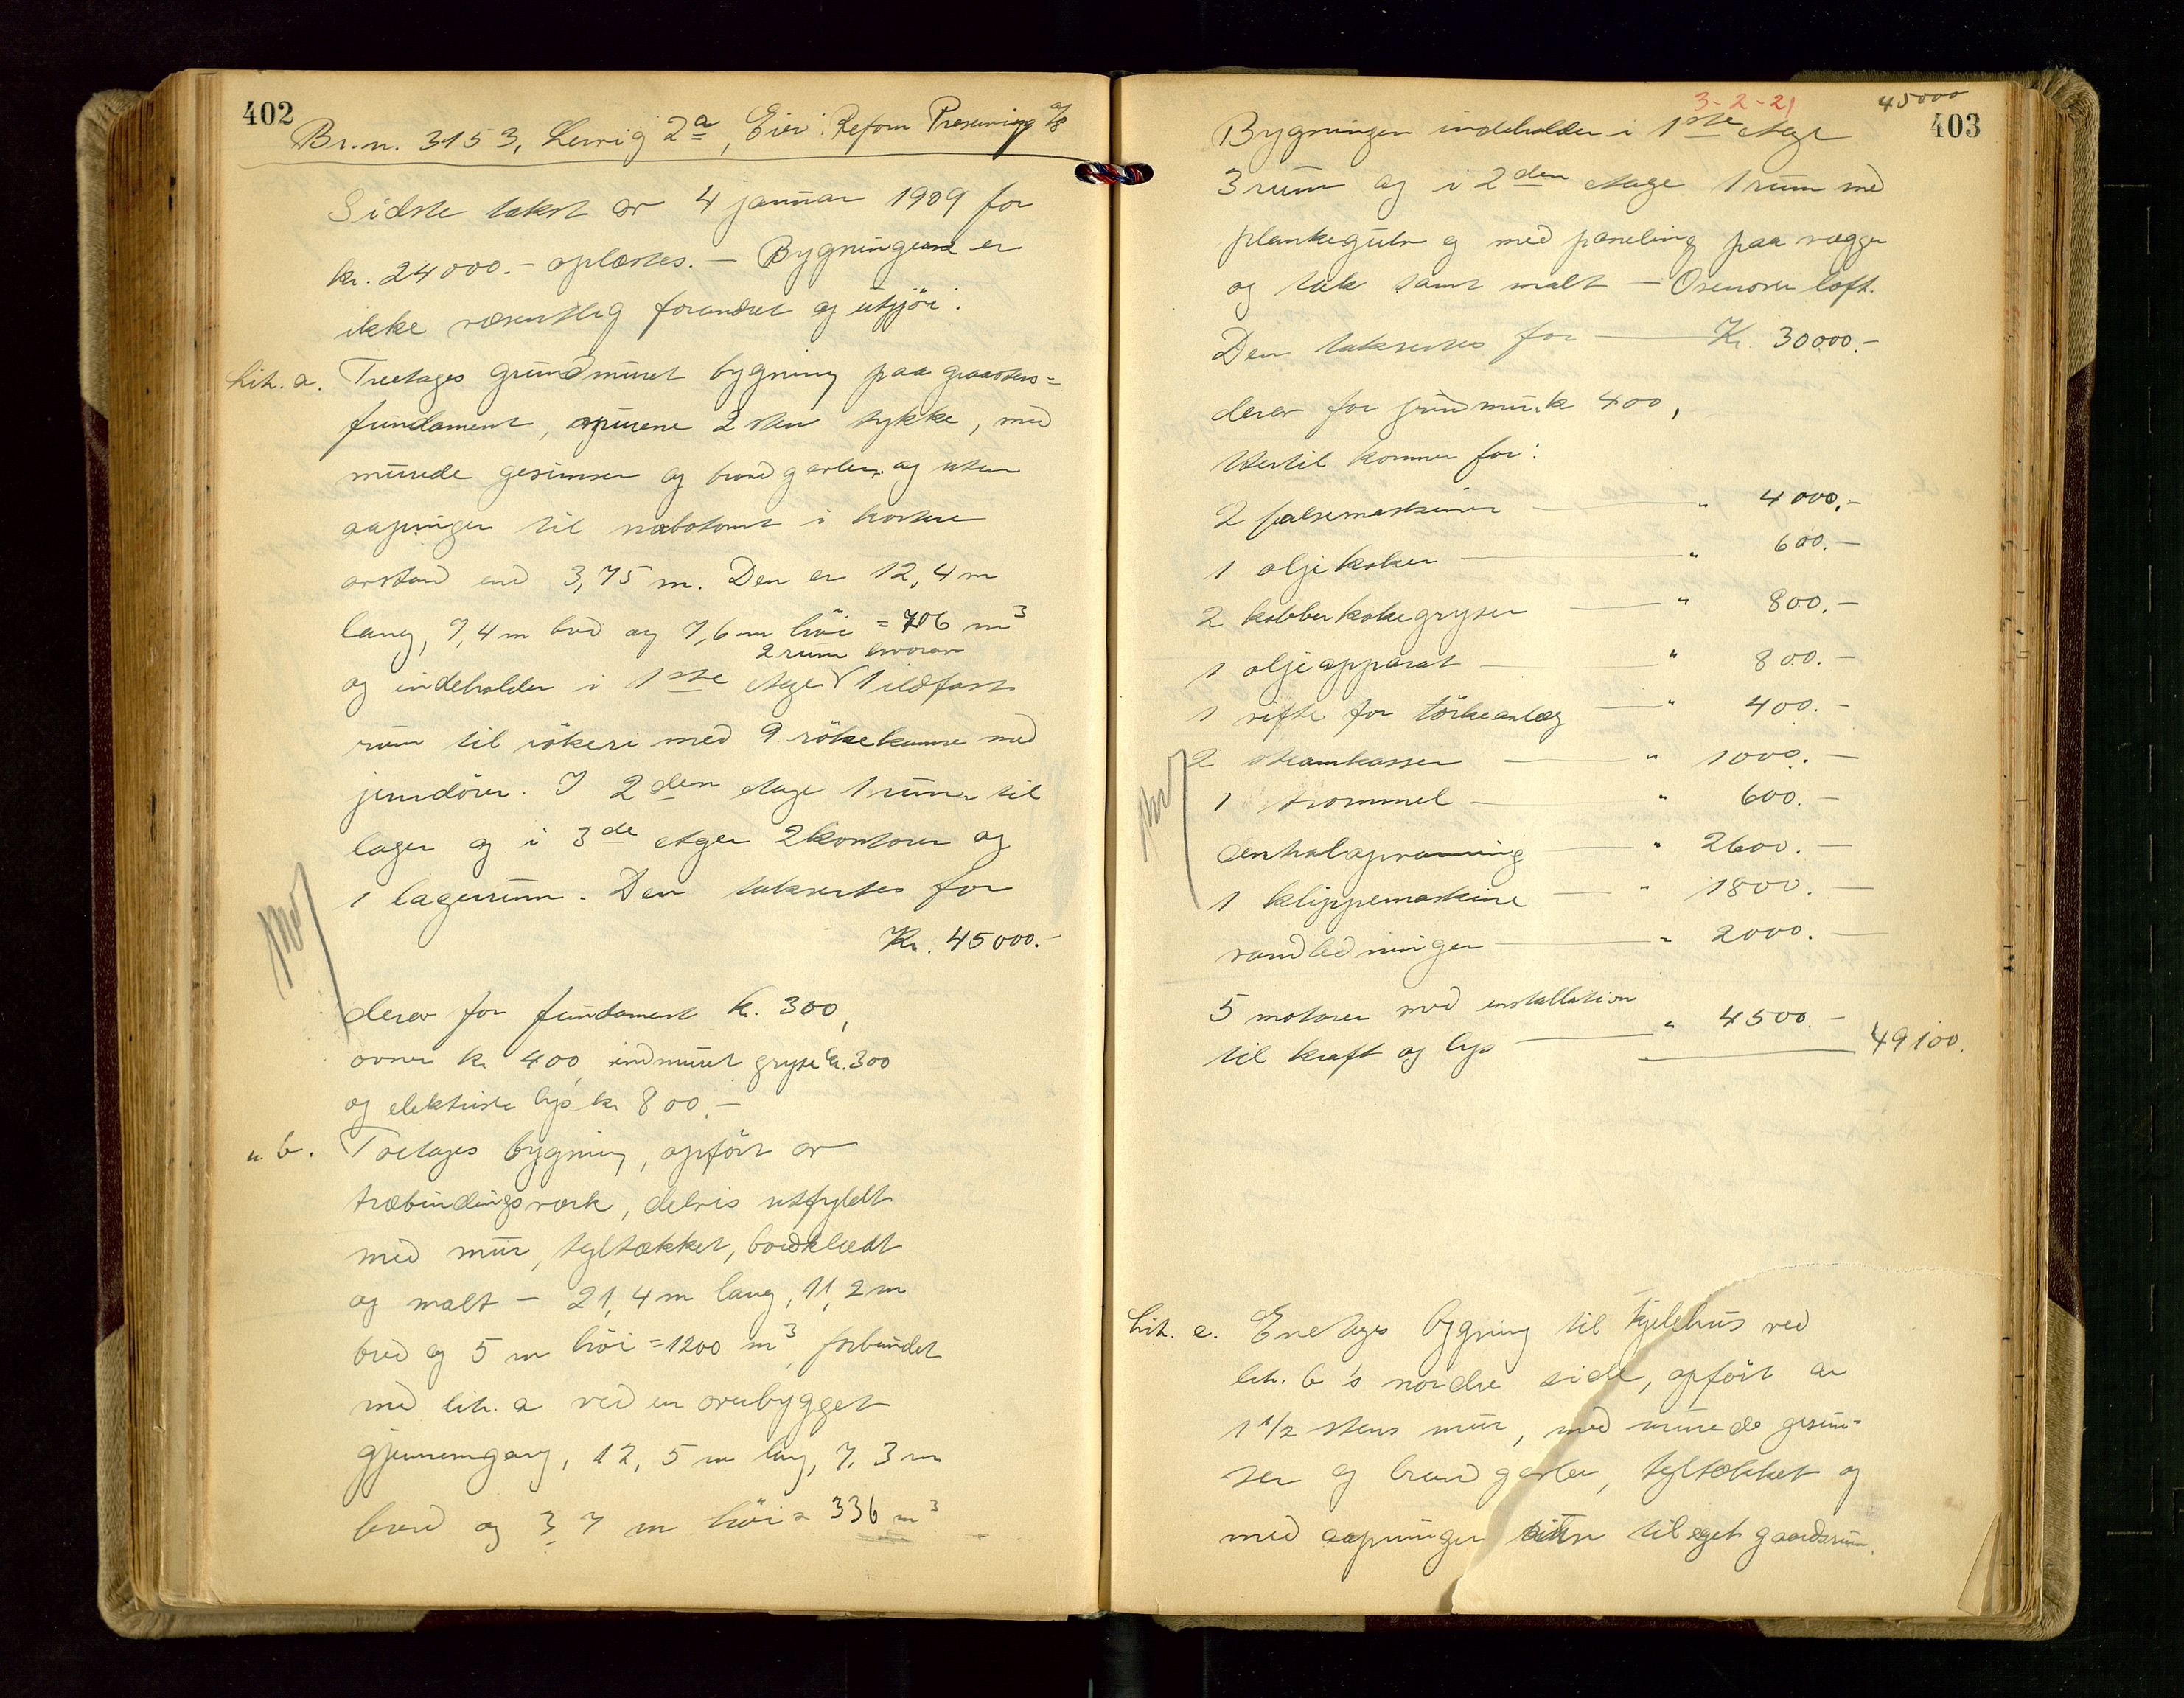 402
Br.n. 3153, Lervig 2a, Eier: Reform Preserving A/S
Sidste takst av 4 januar 1909 for
kr. 24000.- oplæstes. - Bygningene er
ikke væsentlig forandret og utgjör:
Lit. a. Treetages grundmuret bygning paa graastens=
fundament, murene 2 sten tykke, med
murede gesimser og brandgavler og uten
aapninger til nabotomt i kortere
avstand end 3,75 m. Den er 12,4 m
lang, 7,4 m bred og 7,6 m höi = 706 m3
2 rum hvorav
og indeholder i 1ste etage 1 ildfast
rum til rökeri med 9 rökekamre med
jerndörer. I 2den etage 1 rum til
lager og i 3de etage 2 kontorer og
1 lagerrum. Den taksertes for
Kr. 45000.-
derav for fundament kr. 300,
ovner kr 400, indmuret gryte kr. 300
og elektriske lys kr 800.-
" b. Toetages bygning, opfört av
træbindingsværk, delvis utfyldt
med mur, tegltækket, bordklædt
og malt - 21,4 m lang, 11,2 m
bred og 5 m höi = 1200 m3, forbundet
med lit. a ved en overbygget
gjennemgang, 12,5 m lang, 7,3 m
bred og 3,7 m höi = 336 m3
3-2-21
45000
403
Bygningen indeholder i 1ste etage
3 rum og i 2den etage 1 rum med
plankegulv og med paneling paa vægger
og tak samt malt - Ovenover loft.
Den taksertes for Kr. 30000.-
derav for grundmur k 400,
Hertil kommer for:
2 falsemaskiner " 4000,-
1 oljekoker " 600.-
2 kobberkokegryter " 800.-
1 oljeapparat " 800.-
1 vifte for törkeanlæg " 400.-
2 steamkasser " 1000.-
1 trommel " 600.-
Centralopvarming " 2600.-
1 klippemaskine " 1800.-
vandledninger " 2000.-
5 motorer med installation
til kraft og lys " 4500.- 49100.
Lit. c. Enetages bygning til kjelehus ved
lit. b's nordre side, opfört av
1 1/2 stens mur, med murede gesim-
ser og brandgavler, tegltækket og
med aapninger til eget gaardsrum.